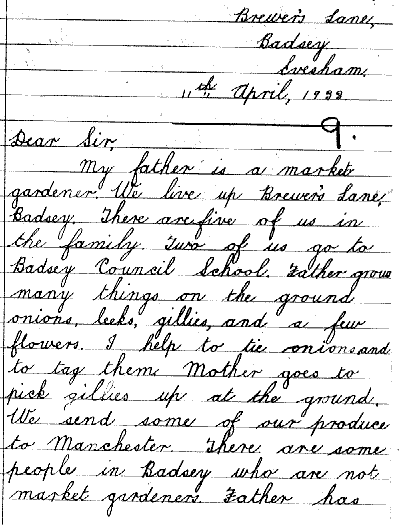 Brewer's Lane,
Badsey
Evesham.
11th April, 1938
9.
Dear Sir,
My father is a market
gardener. We live up Brewer's Lane,
Badsey. There are five of us in
the family. Two of us go to
Badsey Council School. Father grows
many things on the ground
onions, leeks, gillies, and a few
flowers. I help to tie onions and
to tag them. Mother goes to
pick gillies up at the ground.
We send some of our produce
to Manchester. There are some
people in Badsey who are not
market gardeners. Father has